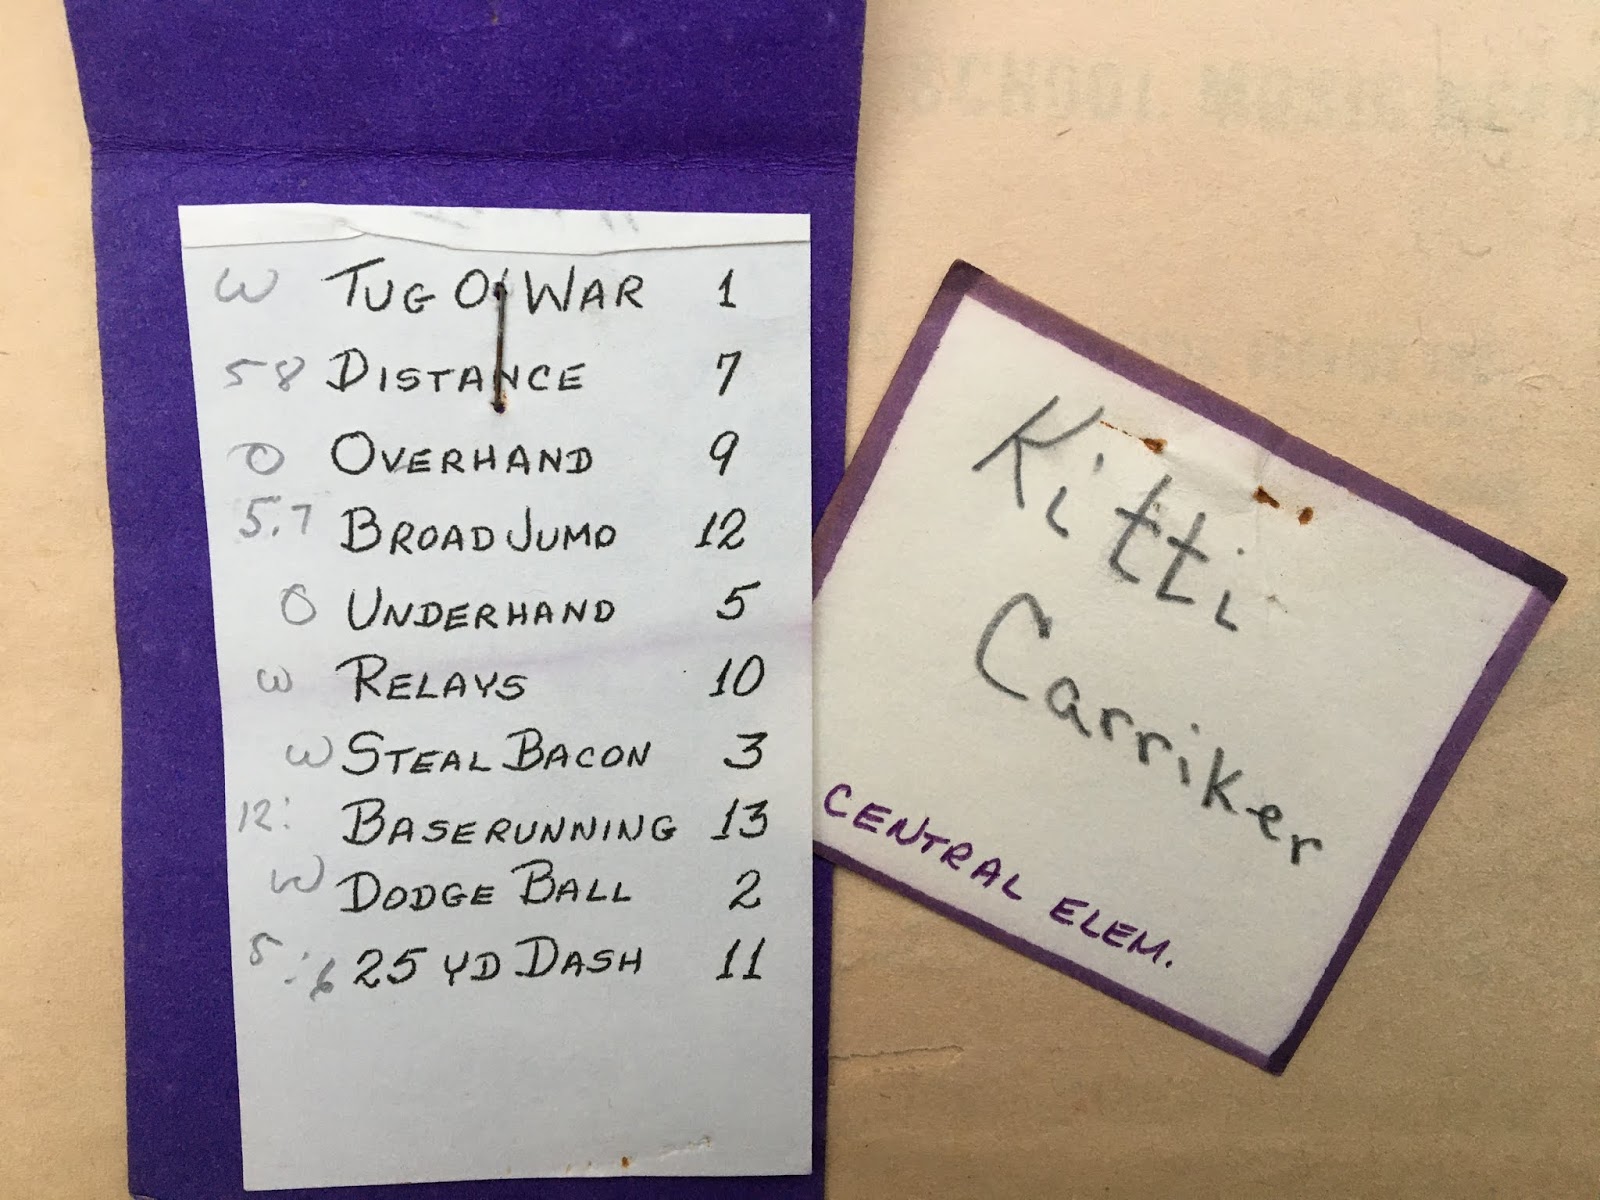 W TUG O' WAR 1
58 DISTANCE 7
0 OVERHAND 9
5.7 BROAD JUMP 12
0 UNDERHAND 5
W RELAYS 10
W STEAL BACON 3
12: BASERUNNING 13
W DODGE BALL 2
5:6 25 YD DASH 11
Kitti
Carriker
CENTRAL ELEM.